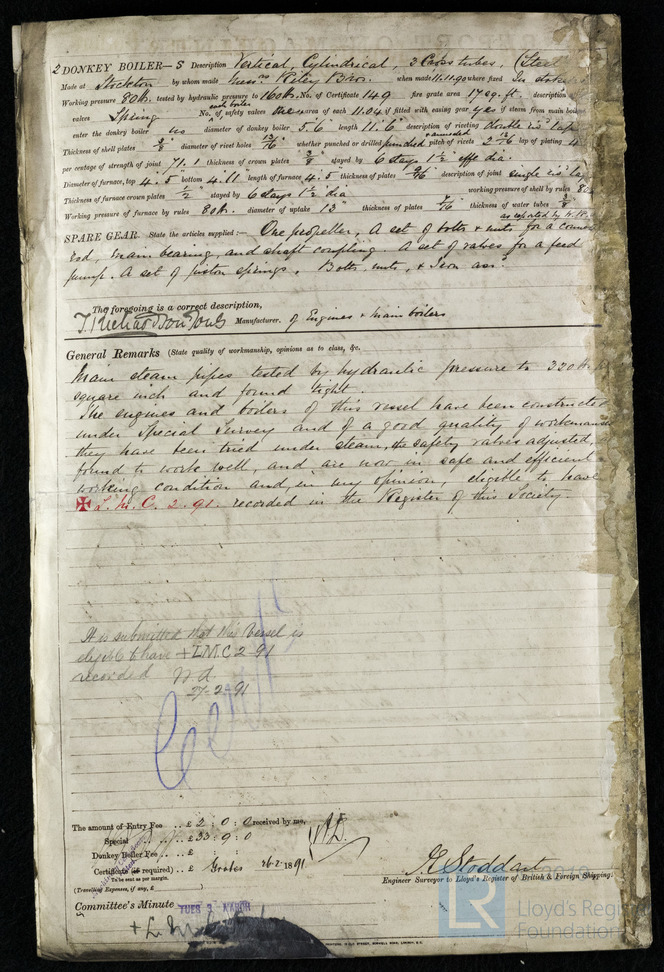 2 DONKEY BOILER—S Description Vertical, Cylindrical, 3 Cross tubes, (Steel
Made at Stockton by whom made Messrs Riley Bros. when made 11.11.90 where fixed In stoke
Working pressure 80 lb. tested by hydraulic pressure to 160 lb. No. of Certificate 149 fire grate area 17 sq. ft. description
each boiler
valves Spring No. of safety valves One area of each 11.04 if fitted with easing gear yes if steam from main boilers
enter the donkey boiler no diameter of donkey boiler 5.6 length 11.6 description of riveting double riv. lap
Thickness of shell plates 3/8 diameter of rivet holes 13/16 whether punched or drilled punched pitch of rivets 2 13/16 lap of plating 4
per centage of strength of joint 71.1 thickness of crown plates 3/8 stayed by 6 stays 1 1/2 effe dia.
Diameter of furnace, top 4.5 bottom 4.11 length of furnace 4.5 thickness of plates /16 description of joint single riv. lap
Thickness of furnace crown plates 1/2 stayed by 6 stays 1 1/2 dia working pressure of shell by rules 80
Working pressure of furnace by rules 80 lb. diameter of uptake 13" thickness of plates 7/16 thickness of water tubes 3/8
as reported by
SPARE GEAR. State the articles supplied:— One propeller, A set of bolts & nuts for a connec
rod, main bearing, and shaft coupling. A set of valves for a feed
pump. A set of piston springs. Bolts, nuts, & Iron assd
The foregoing is a correct description,
T. Richardson & Sons Manufacturer. of Engines & Main boilers
General Remarks (State quality of workmanship, opinions as to class, &c.
Main steam pipes tested by hydraulic pressure to 320 lb
square inch and found tight.
The engines and boilers of this vessel have been constructed
under Special Survey and of a good quality of workmans
they have been tried under steam, the safety valves adjusted,
found to work well, and are now in safe and efficient
working condition and, in my opinion, eligible to have
✠ L.M.C. 2.91. recorded in the Register of this Society.
It is submitted that this Vessel is
eligible to have +LMC 2-91
recorded
27-2-91
The amount of Entry Fee .. £ 2 : 0 : 0 received by me,
Special .. £ 33 : 9 : 0
Donkey Boiler Fee .. £ : :
Certificate (if required) .. £ Gratis 26.2.1891
To be sent as per margin.
(Travelling Expenses, if any, £ )
Stoddart
Engineer Surveyor to Lloyd's Register of British & Foreign Shipping.
Committee's Minute TUES 3 MARCH
+ L.M.
LR
Lloyd's Register
Foundation